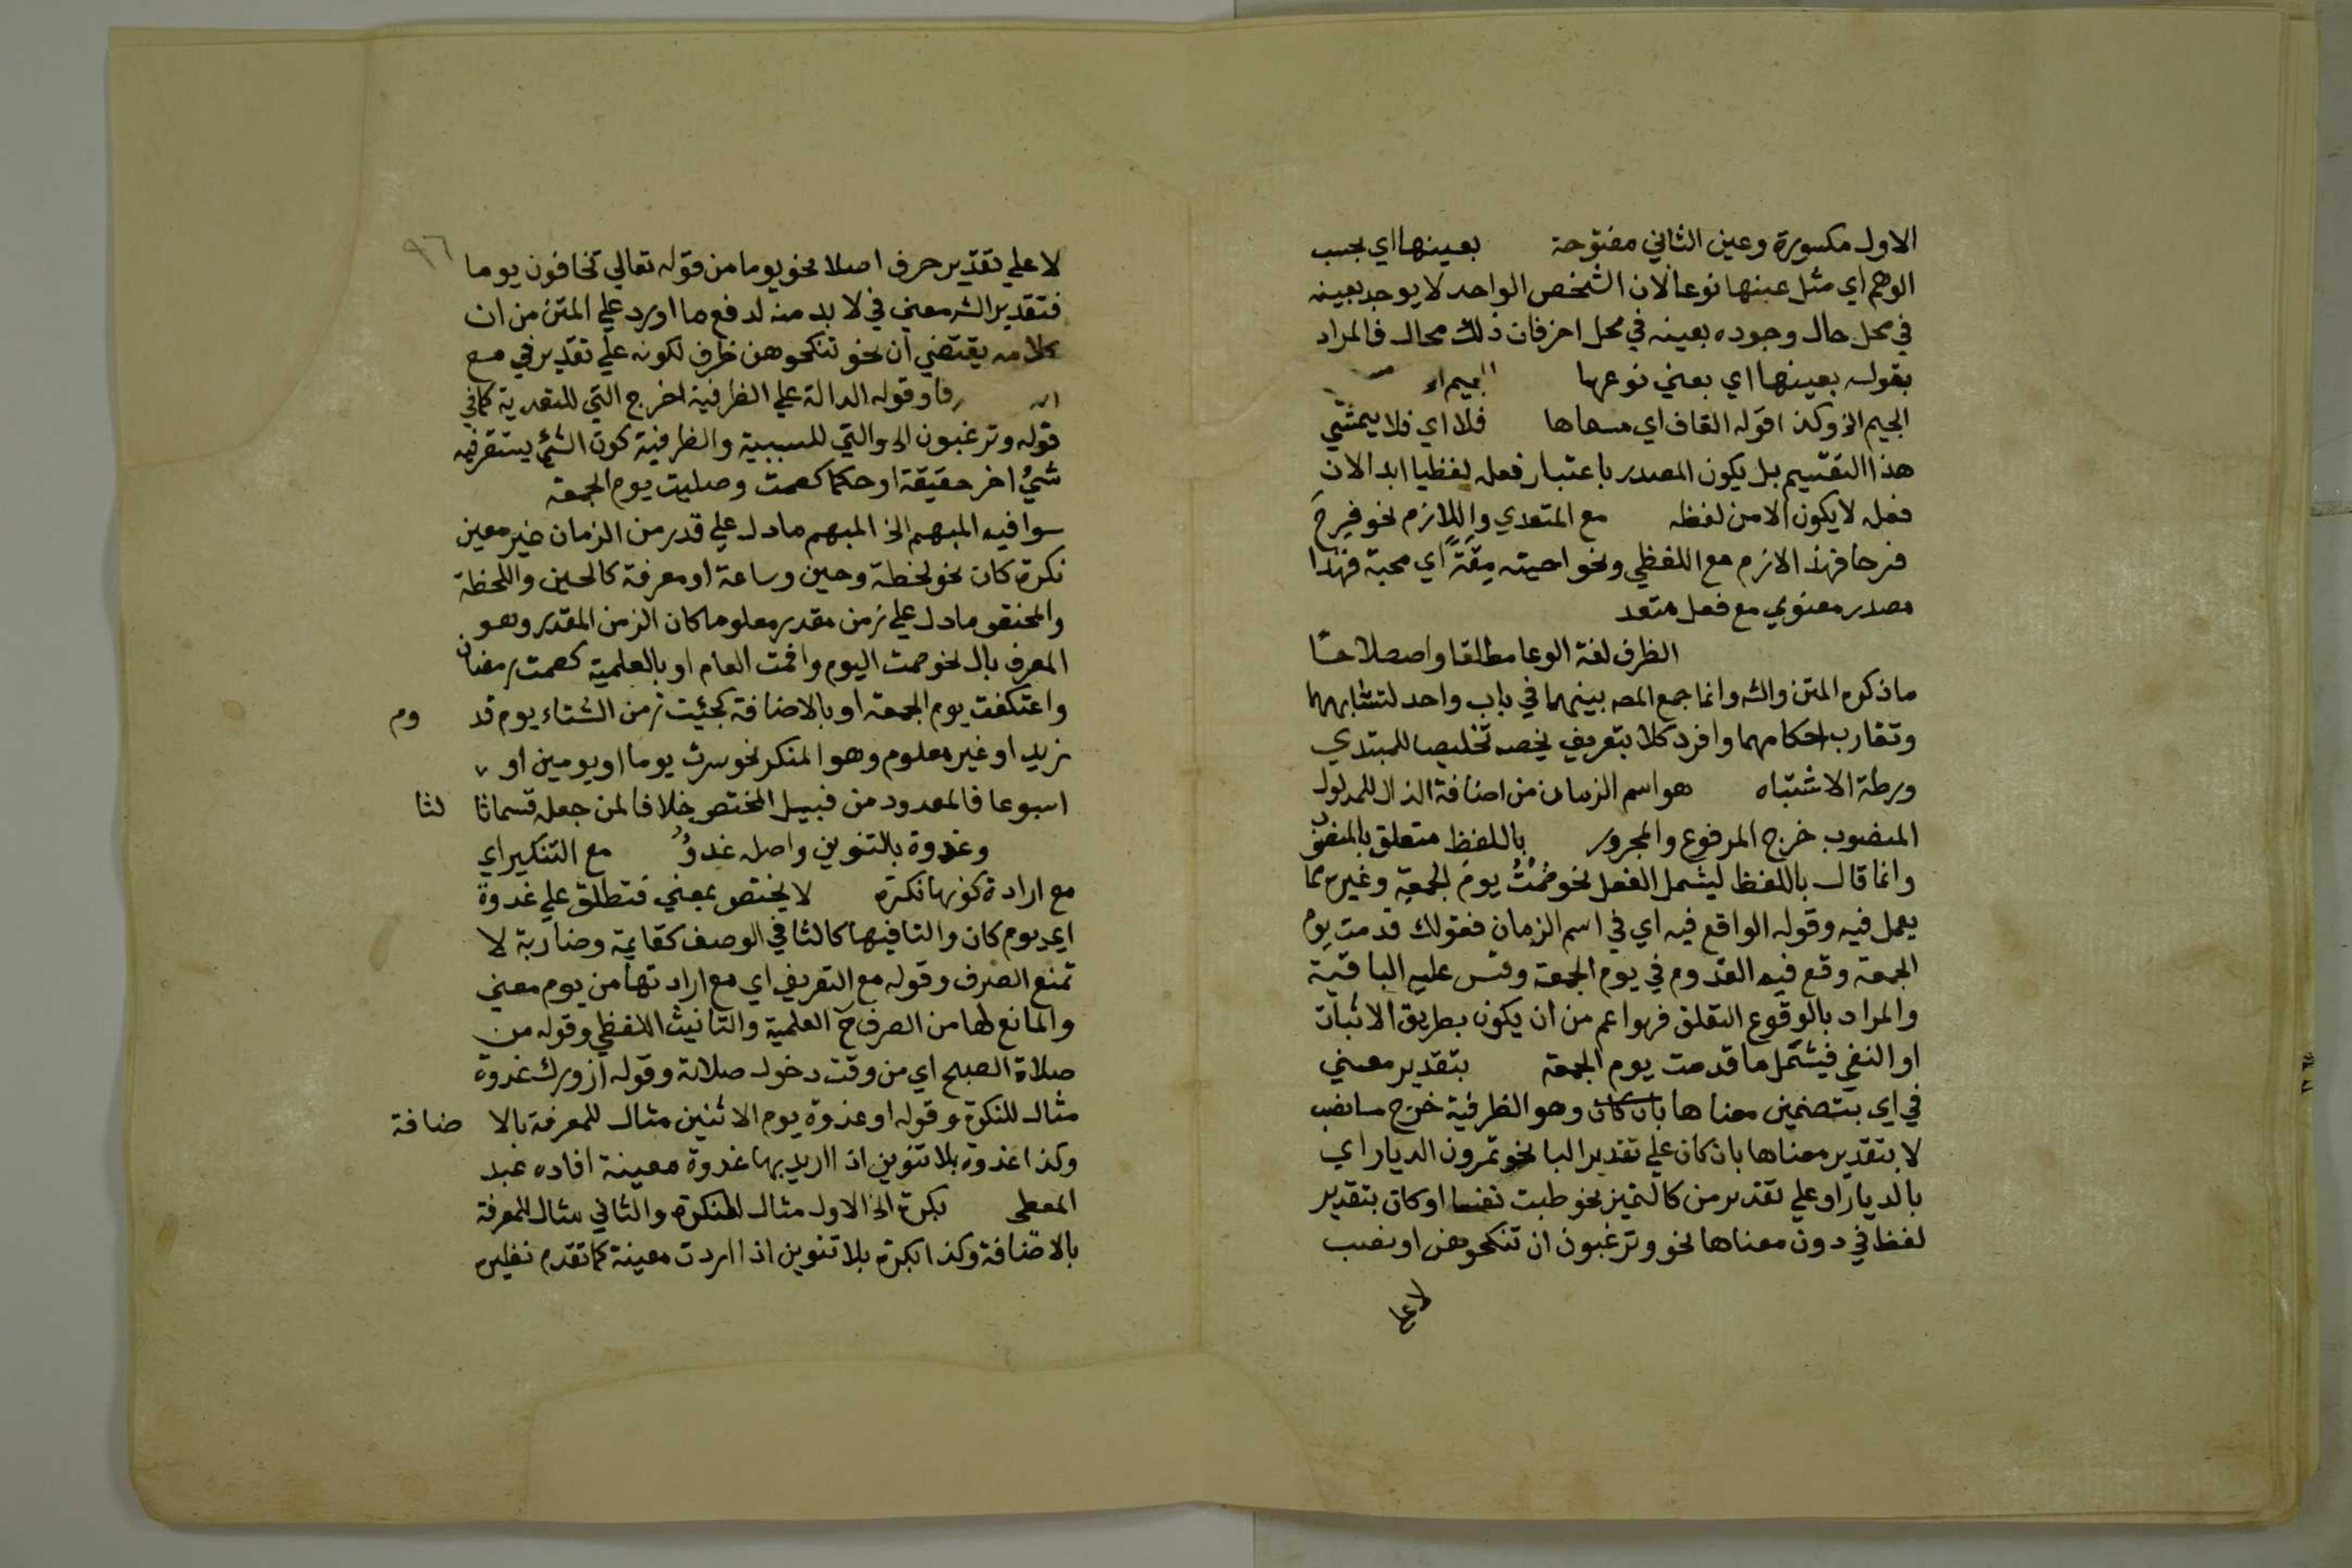 الاول مكسورة وعين الثاني مفتوحة بعينها اي بحسب
الوهم اي مثل عينها نوعا لان الشخص الواحد لا يوجد بعينه
في محل حال وجوده بعينه في محل اخر فان ذلك محال فالمراد
بقوله بعينها اي بعني نوعها الجيم
الجيم الخ وكذا قوله القاف اي مسماها فلا اي فلا يتمشي
هذا التقسيم بل يكون المصدر باعتبار فعله لفظيا ابدا لان
فعله لا يكون الا من لفظه مع المتعدي واللازم نحو فرِحَ
فرحا فهذا لازم مع اللفظي ونحو احببته مِقَةً اي محبة فهذا
مصدر معنوي مع فعل متعد
الظرف لغة الوعا مطلقا واصطلاحًا
ما ذكره المتن والشـ وانما جمع المصـ بينهما في باب واحد لتشابههما
وتقارب احكامهما وافرد كلا بتعريف يخصه تخليصا للمبتدي
ورطة الاشتباه هو اسم الزمان من اضافة الدال للمدلول
المنصوب خرج المرفوع والمجرور باللفظ متعلق بالمنصوب
وانما قال باللفظ ليشمل الفعل نحو صُمْتُ يومَ الجمعةِ وغيره مما
يعمل فيه وقوله الواقع فيه اي في اسم الزمان فقولك قدمت يوم
الجمعة وقع فيه القدوم في يوم الجمعة وقس عليه الباقية
والمراد بالوقوع التعلق فهو اعم من ان يكون بطريق الاثبات
او النفي فيشمل ما قدمت يوم الجمعة بتقدير معني
في اي بتضمين معناها بان كان وهو الظرفية خرج ما نصب
لا بتقدير معناها بان كان علي تقدير البا نحو تمرون الديار اي
بالديار او علي تقدير من كالتميز نحو طبت نفسا او كان بتقدير
لفظ في دون معناها نحو وترغبون ان تنكحوهن او نصب
لا علي
٩٦
لا علي تقدير حرف اصلا نحو يوما من قوله تعالي تخافون يوما
فتقدير الشـ معني في لا بد منه لدفع ما اورد علي المتن من ان
كلامه يقتضي ان نحو تنكحوهن ظرف لكونه علي تقدير في مع
وقوله الدالة علي الظرفية اخرج التي للتعدية كما في
قوله وترغبون الخ والتي للسببية والظرفية كون الشئ يستقر فيه
شئ اخر حقيقة او حكما كصمت وصليت يوم الجمعة
سوا فيه المبهم الخ المبهم ما دل علي قدر من الزمان غير معين
نكرة كان نحو لحظة وحين وساعة او معرفة كالحين واللحظة
والمختص ما دل علي زمن مقدر معلوما كان الزمن المقدر وهو
المعرف بال نحو صمت اليوم واقمت العام او بالعلمية كصمت رمضان
واعتكفت يوم الجمعة او بالاضافة كجئت زمن الشتاء يوم قد وم
زيد او غير معلوم وهو المنكر نحو سرت يوما او يومين او
اسبوعا فالمعدود من قبيل المختص خلافا لمن جعله قسما ثا لثا
وغدوة بالتنوين واصله غدوٌ مع التنكير اي
مع ارادة كونها نكرة لا يختص بمعني فتطلق علي غدوة
اي يوم كان والتا فيها كالتا في الوصف كقايمة وضاربة لا
تمنع الصرف وقوله مع التعريف اي مع ارادتها من يوم معني
والمانع لها من الصرف ح العلمية والتانيث اللفظي وقوله من
صلاة الصبح اي من وقت دخول صلاته وقوله ازورك غدوة
مثال للنكرة وقوله او غدوة يوم الاثنين مثال للمعرفة بالا ضافة
وكذا غدوة بلا تنوين اذا اريد بها غدوة معينة افاده عبد
المعطي بكرة الخ الاول مثال للنكرة والثاني مثال للمعرفة
بالاضافة وكذا بكرة بلا تنوين اذا اردت معينة كما تقدم نظيره